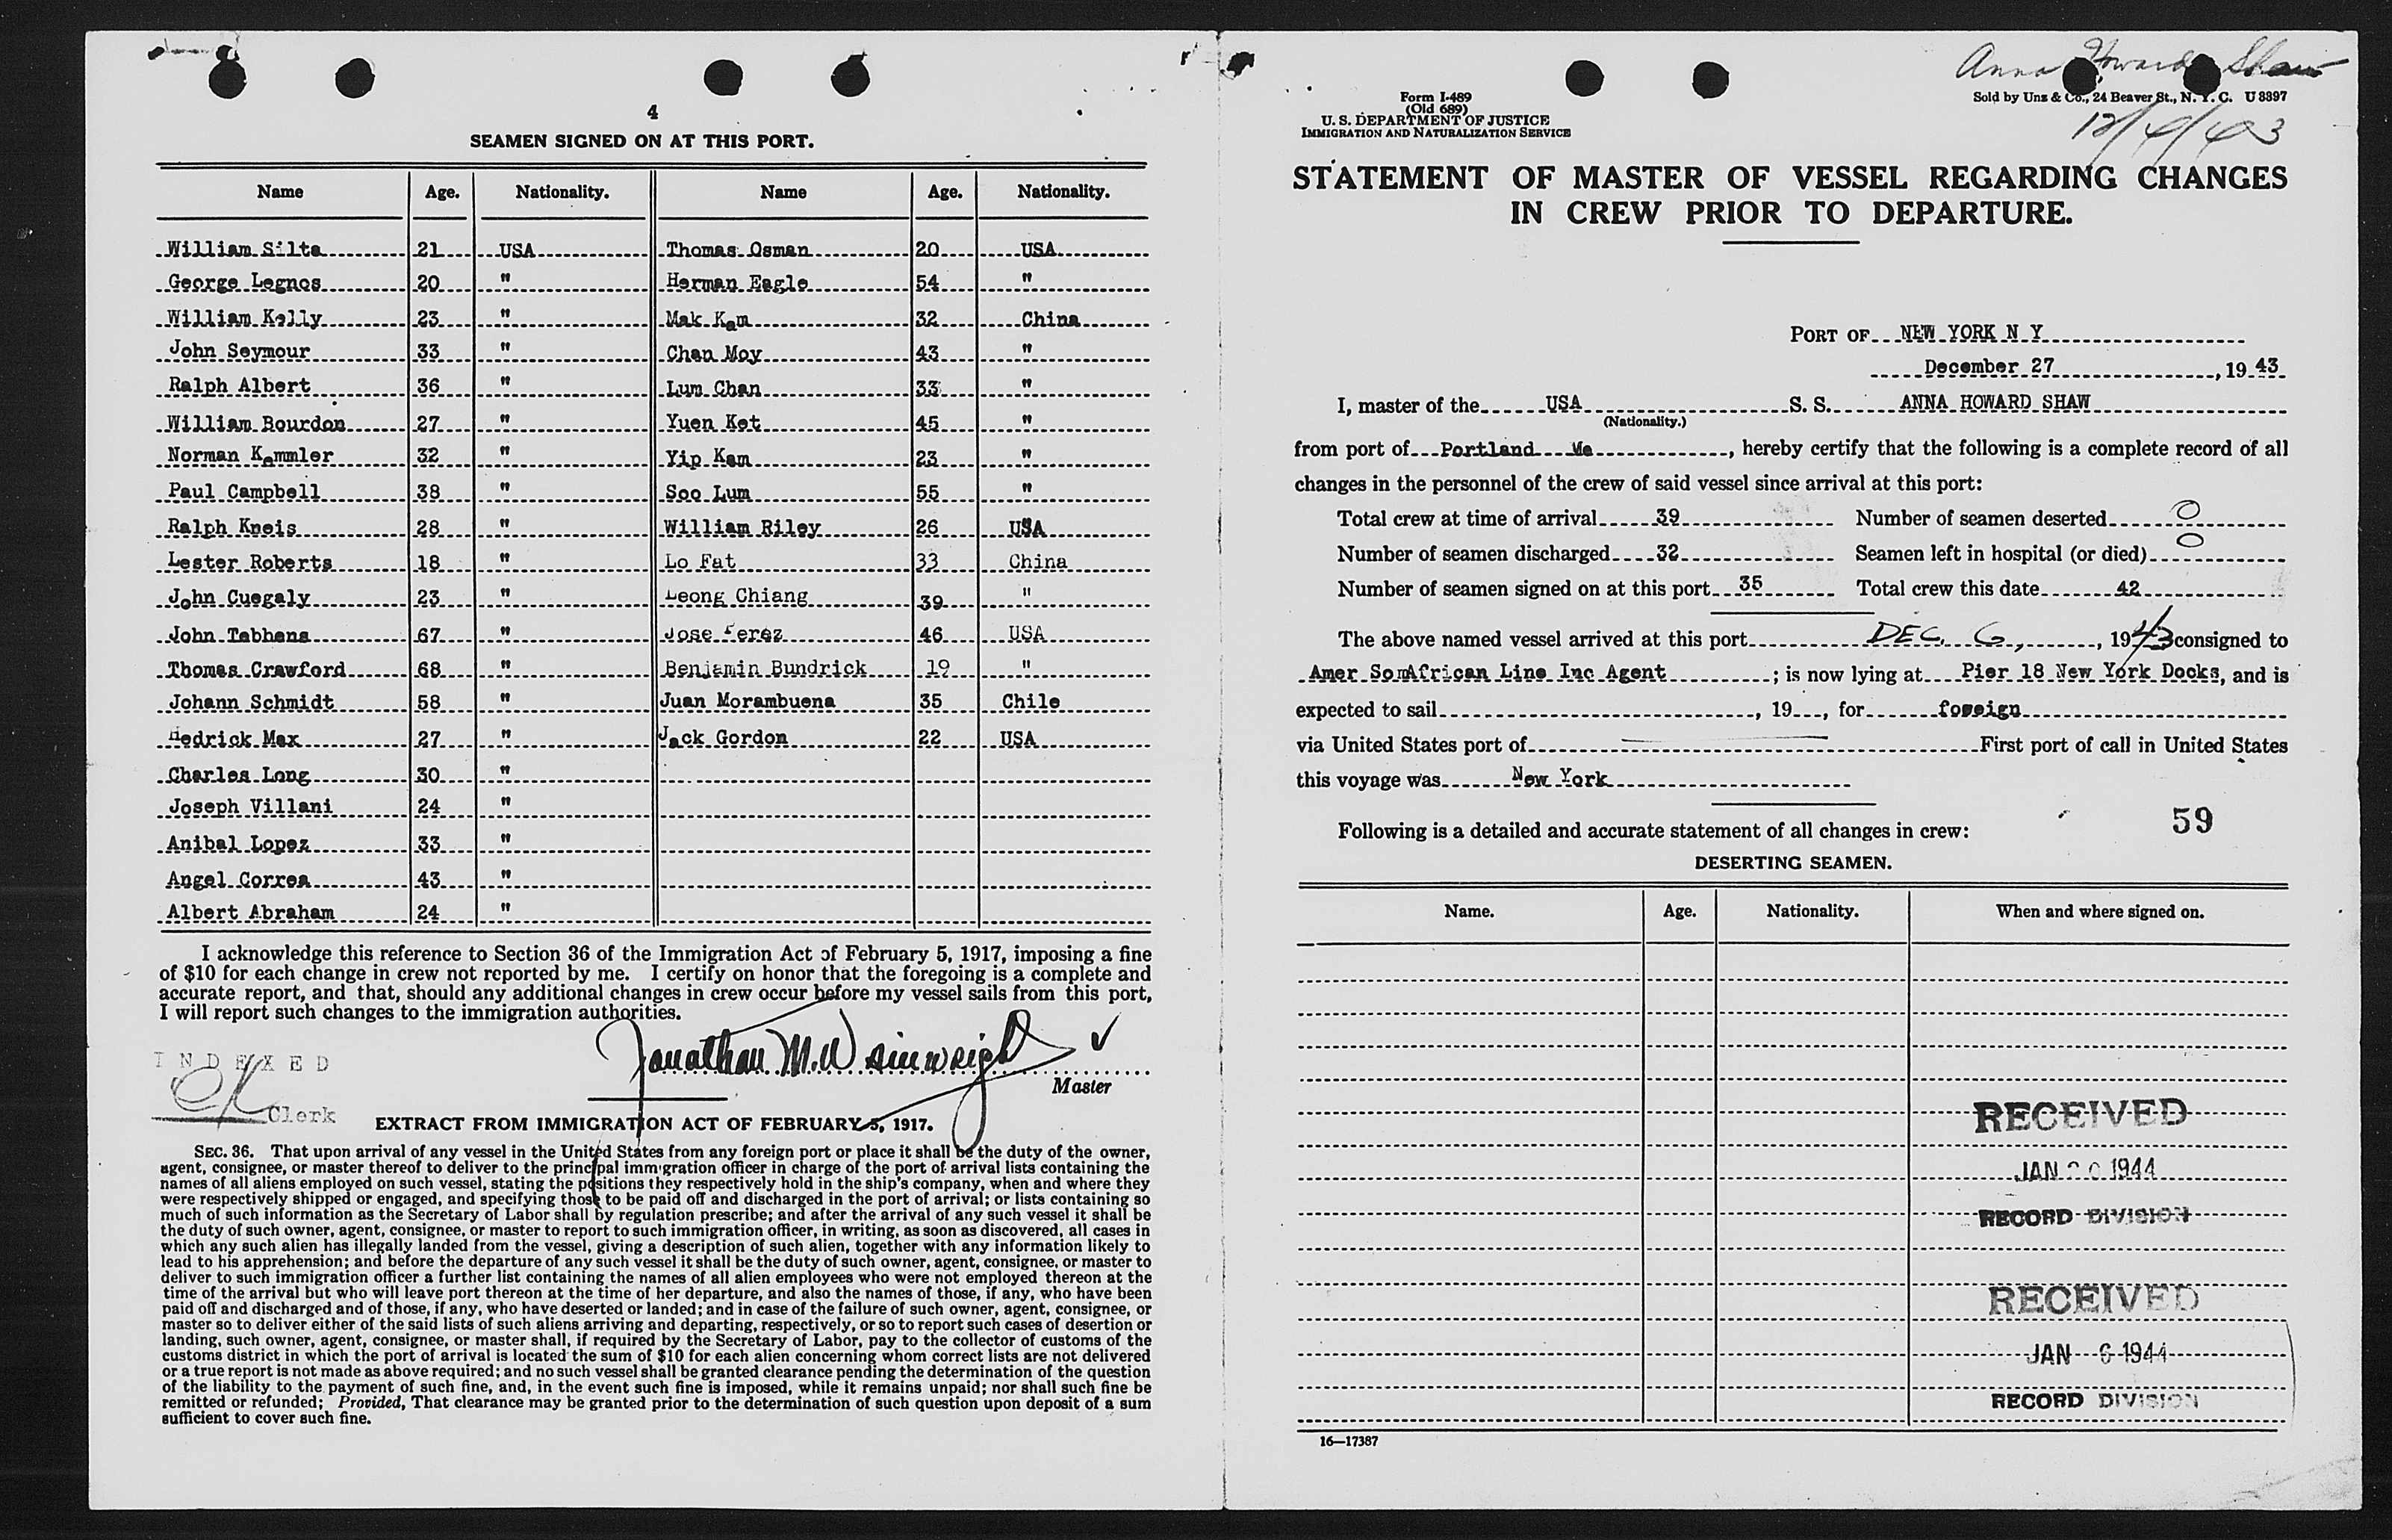 4
SEAMEN SIGNED ON AT THIS PORT.
Name Age. Nationality. Name Age. Nationality.
William Silta 21 USA Thomas Osman 20 USA
George Legnos 20 " Herman Eagle 54 "
William Kelly 23 " Mak Kam 32 China
John Seymour 33 " Chan Moy 43 "
Ralph Albert 36 " Lum Chan 33 "
William Bourdon 27 " Yuen Ket 45 "
Norman Kemmler 32 " Yip Kam 23 "
Paul Campbell 38 " Soo Lum 55 "
Ralph Kneis 28 " William Riley 26 USA
Lester Roberts 18 " Lo Fat 33 China
John Cuegaly 23 " Leong Chiang 39 "
John Tebhens 67 " Jose Perez 46 USA
Thomas Crawford 68 " Benjamin Bundrick 19 "
Johann Schmidt 58 " Juan Morambuena 35 Chile
Hedrick Max 27 " Jack Gordon 22 USA
Charles Long 30 "
Joseph Villani 24 "
Anibal Lopez 33 "
Angel Correa 43 "
Albert Abraham 24 "
I acknowledge this reference to Section 36 of the Immigration Act of February 5, 1917, imposing a fine
of $10 for each change in crew not reported by me. I certify on honor that the foregoing is a complete and
accurate report, and that, should any additional changes in crew occur before my vessel sails from this port,
I will report such changes to the immigration authorities.
INDEXED
Clerk
Jonathan M. Wainwright
Master
EXTRACT FROM IMMIGRATION ACT OF FEBRUARY 5, 1917.
SEC. 36. That upon arrival of any vessel in the United States from any foreign port or place it shall be the duty of the owner,
agent, consignee, or master thereof to deliver to the principal immigration officer in charge of the port of arrival lists containing the
names of all aliens employed on such vessel, stating the positions they respectively hold in the ship's company, when and where they
were respectively shipped or engaged, and specifying those to be paid off and discharged in the port of arrival; or lists containing so
much of such information as the Secretary of Labor shall by regulation prescribe; and after the arrival of any such vessel it shall be
the duty of such owner, agent, consignee, or master to report to such immigration officer, in writing, as soon as discovered, all cases in
which any such alien has illegally landed from the vessel, giving a description of such alien, together with any information likely to
lead to his apprehension; and before the departure of any such vessel it shall be the duty of such owner, agent, consignee, or master to
deliver to such immigration officer a further list containing the names of all alien employees who were not employed thereon at the
time of the arrival but who will leave port thereon at the time of her departure, and also the names of those, if any, who have been
paid off and discharged and of those, if any, who have deserted or landed; and in case of the failure of such owner, agent, consignee, or
master so to deliver either of the said lists of such aliens arriving and departing, respectively, or so to report such cases of desertion or
landing, such owner, agent, consignee, or master shall, if required by the Secretary of Labor, pay to the collector of customs of the
customs district in which the port of arrival is located the sum of $10 for each alien concerning whom correct lists are not delivered
or a true report is not made as above required; and no such vessel shall be granted clearance pending the determination of the question
of the liability to the payment of such fine, and, in the event such fine is imposed, while it remains unpaid; nor shall such fine be
remitted or refunded; Provided, That clearance may be granted prior to the determination of such question upon deposit of a sum
sufficient to cover such fine.
Anna Howard Shaw
Form I-489
(Old 689)
U. S. DEPARTMENT OF JUSTICE
IMMIGRATION AND NATURALIZATION SERVICE
Sold by Unz & Co., 24 Beaver St., N. Y. C. U 8897
12/4/43
STATEMENT OF MASTER OF VESSEL REGARDING CHANGES
IN CREW PRIOR TO DEPARTURE.
PORT OF NEW YORK N Y
December 27, 1943
I, master of the USA S. S. ANNA HOWARD SHAW
(Nationality.)
from port of Portland Me, hereby certify that the following is a complete record of all
changes in the personnel of the crew of said vessel since arrival at this port:
Total crew at time of arrival 39 Number of seamen deserted 0
Number of seamen discharged 32 Seamen left in hospital (or died) 0
Number of seamen signed on at this port 35 Total crew this date 42
The above named vessel arrived at this port DEC. 6, 1943 consigned to
Amer SouAfrican Line Inc Agent; is now lying at Pier 18 New York Docks, and is
expected to sail , 19 , for foreign
via United States port of First port of call in United States
this voyage was New York
59
Following is a detailed and accurate statement of all changes in crew:
DESERTING SEAMEN.
Name. Age. Nationality. When and where signed on.
RECEIVED
JAN 1944
RECORD DIVISION
RECEIVED
JAN 6 1944
RECORD DIVISION
16—17387